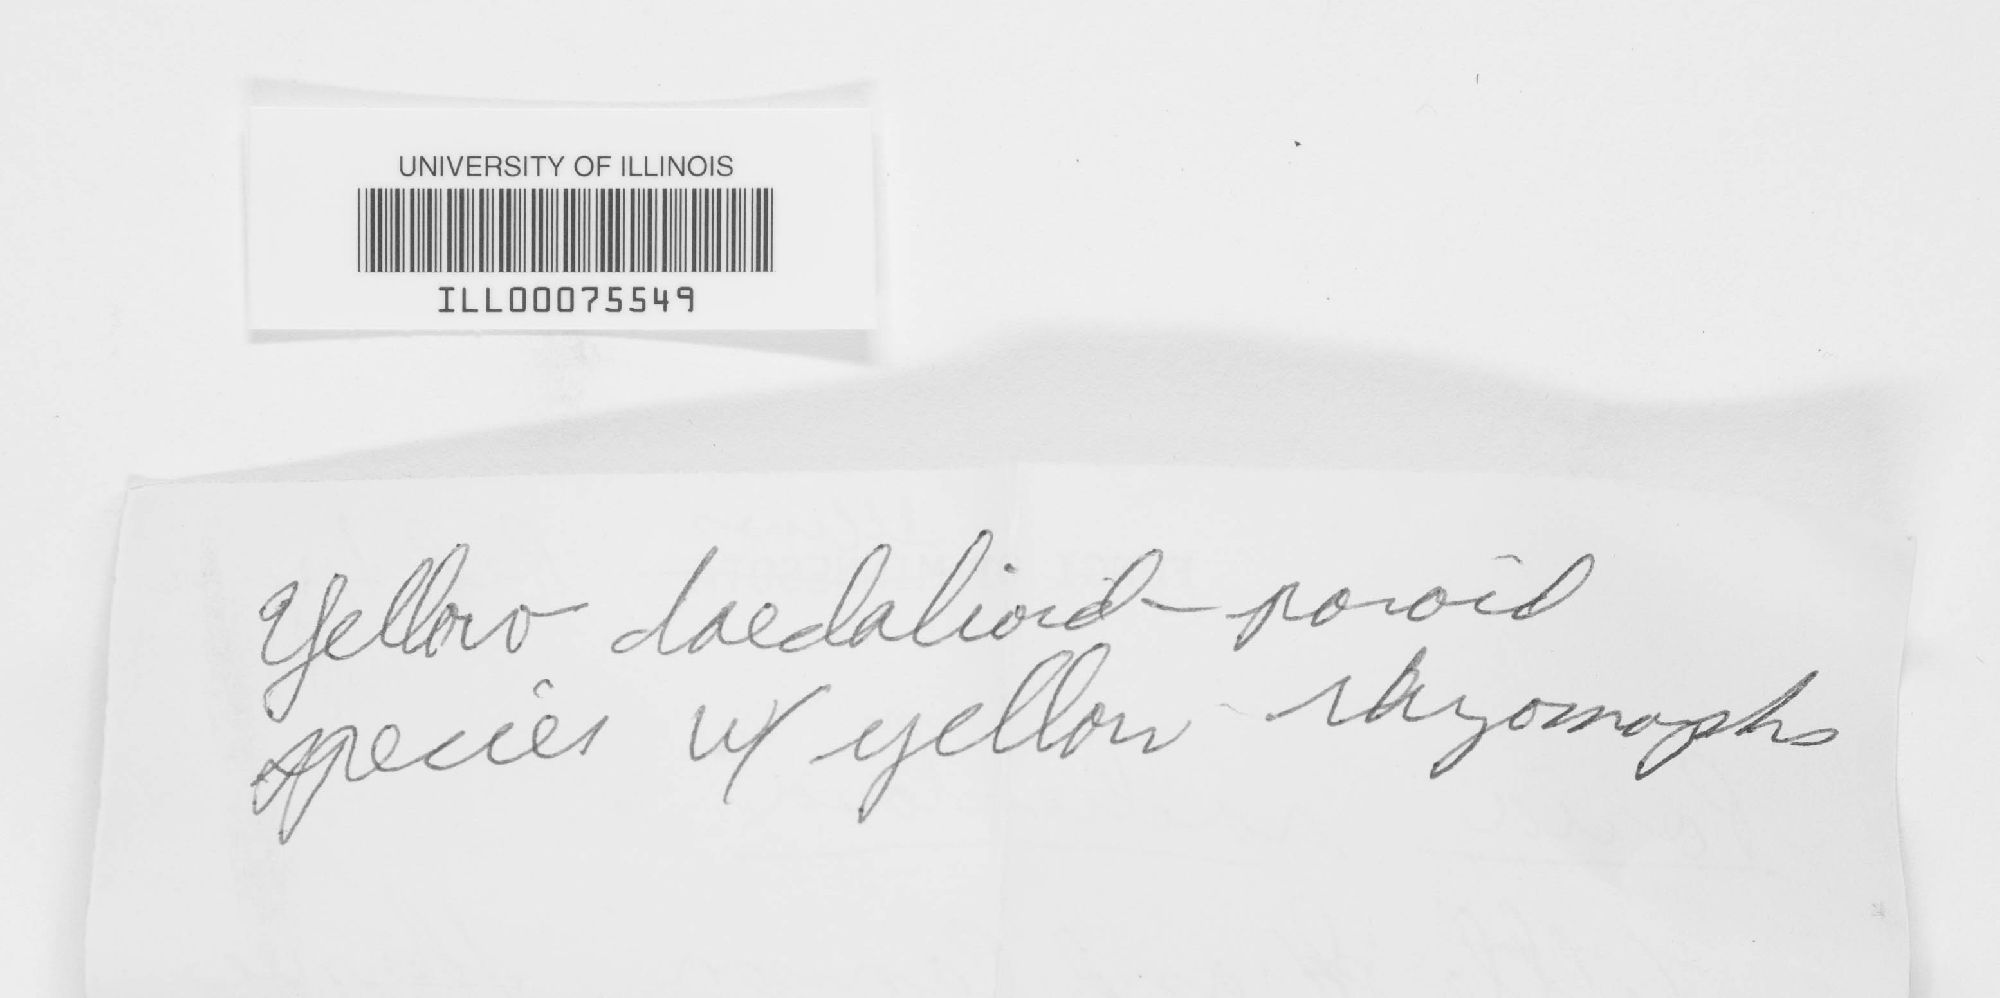 UNIVERSITY OF ILLINOIS
ILL00075549
Yellow daedalioid-poroid
species w/ yellow rhyzomophs